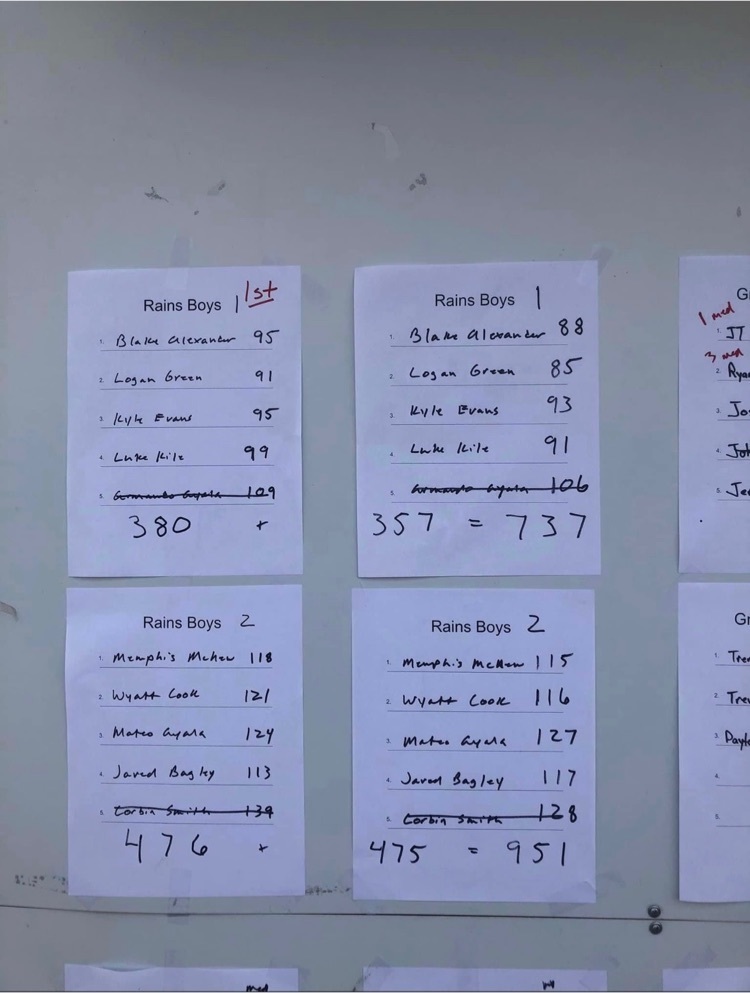 Rains Boys 1 1st
1. Blake Alexander 95
2. Logan Green 91
3. Kyle Evans 95
4. Luke Kile 99
5. Armando Ayala 109
380 +
Rains Boys 1
1. Blake Alexander 88
2. Logan Green 85
3. Kyle Evans 93
4. Luke Kile 91
5. Armando Ayala 106
357 = 737
1 med
1. JT
3 med
2. Rya
3. Jo
4. Joh
5. Je
Rains Boys 2
1. Memphis McHew 118
2. Wyatt Cook 121
3. Mateo Ayala 124
4. Jared Bagley 113
5. Corbin Smith 139
476 +
Rains Boys 2
1. Memphis 115
2. Wyatt Cook 116
3. Mateo Ayala 127
4. Jared Bagley 117
5. Corbin Smith 128
475 = 951
Gr
1. Tre
2. Trev
3. Payt
4.
5.